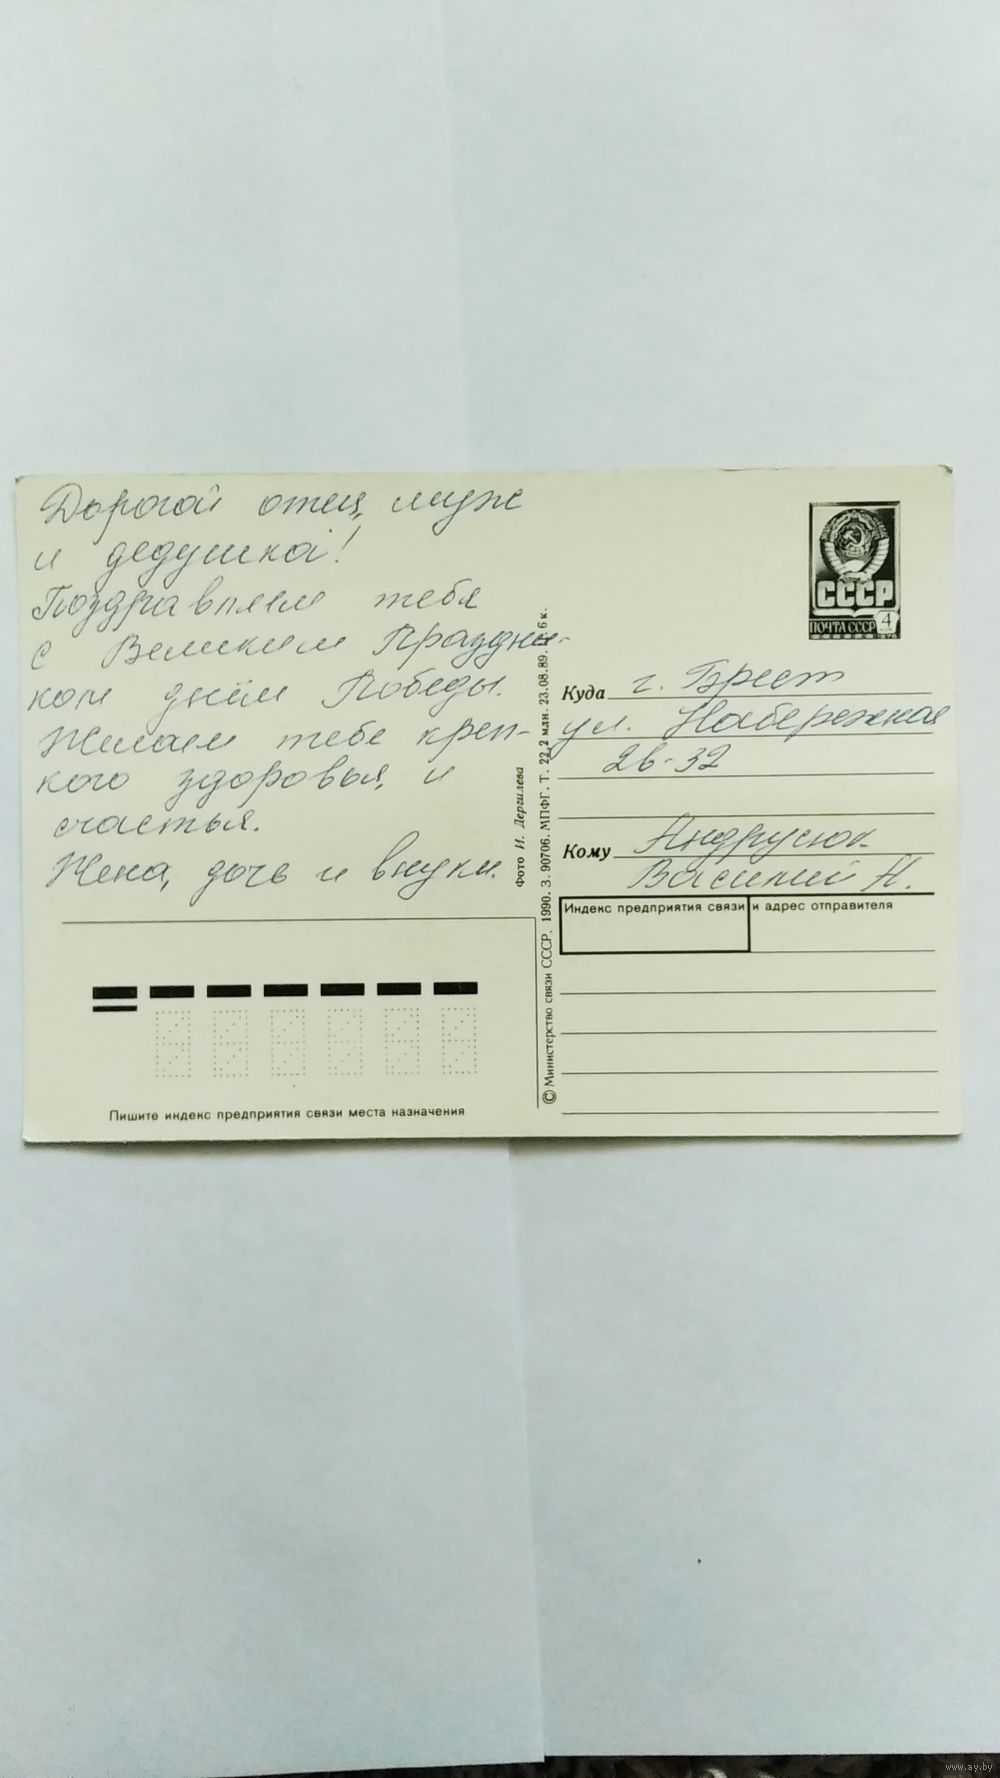 Дорогой отец, муж
и дедушка!
Поздравляем тебя
с Великим Праздни-
ком днём Победы.
Желаем тебе креп-
кого здоровья, и
счастья.
Жена, дочь и внуки.
Пишите индекс предприятия связи места назначения
Фото И. Дергилева
© Министерство связи СССР. 1990. З. 90706. МПФГ. Т. 22,2 млн. 23.08.89. 6 к.
СССР
ПОЧТА СССР 4
Куда г. Брест
ул. Набережная
26-32
Кому Андрусюк
Василий Н.
Индекс предприятия связи и адрес отправителя
www.ay.by